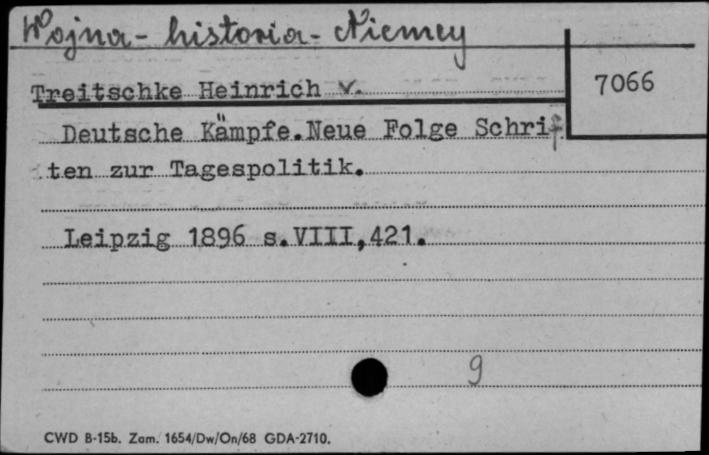 Wojna - historia - Niemcy
7066
Treitschke Heinrich v.
Deutsche Kämpfe.Neue Folge Schrif
ten zur Tagespolitik.
Leipzig 1896 s.VIII,421.
9
CWD B-15b. Zam. 1654/Dw/On/68 GDA-2710.